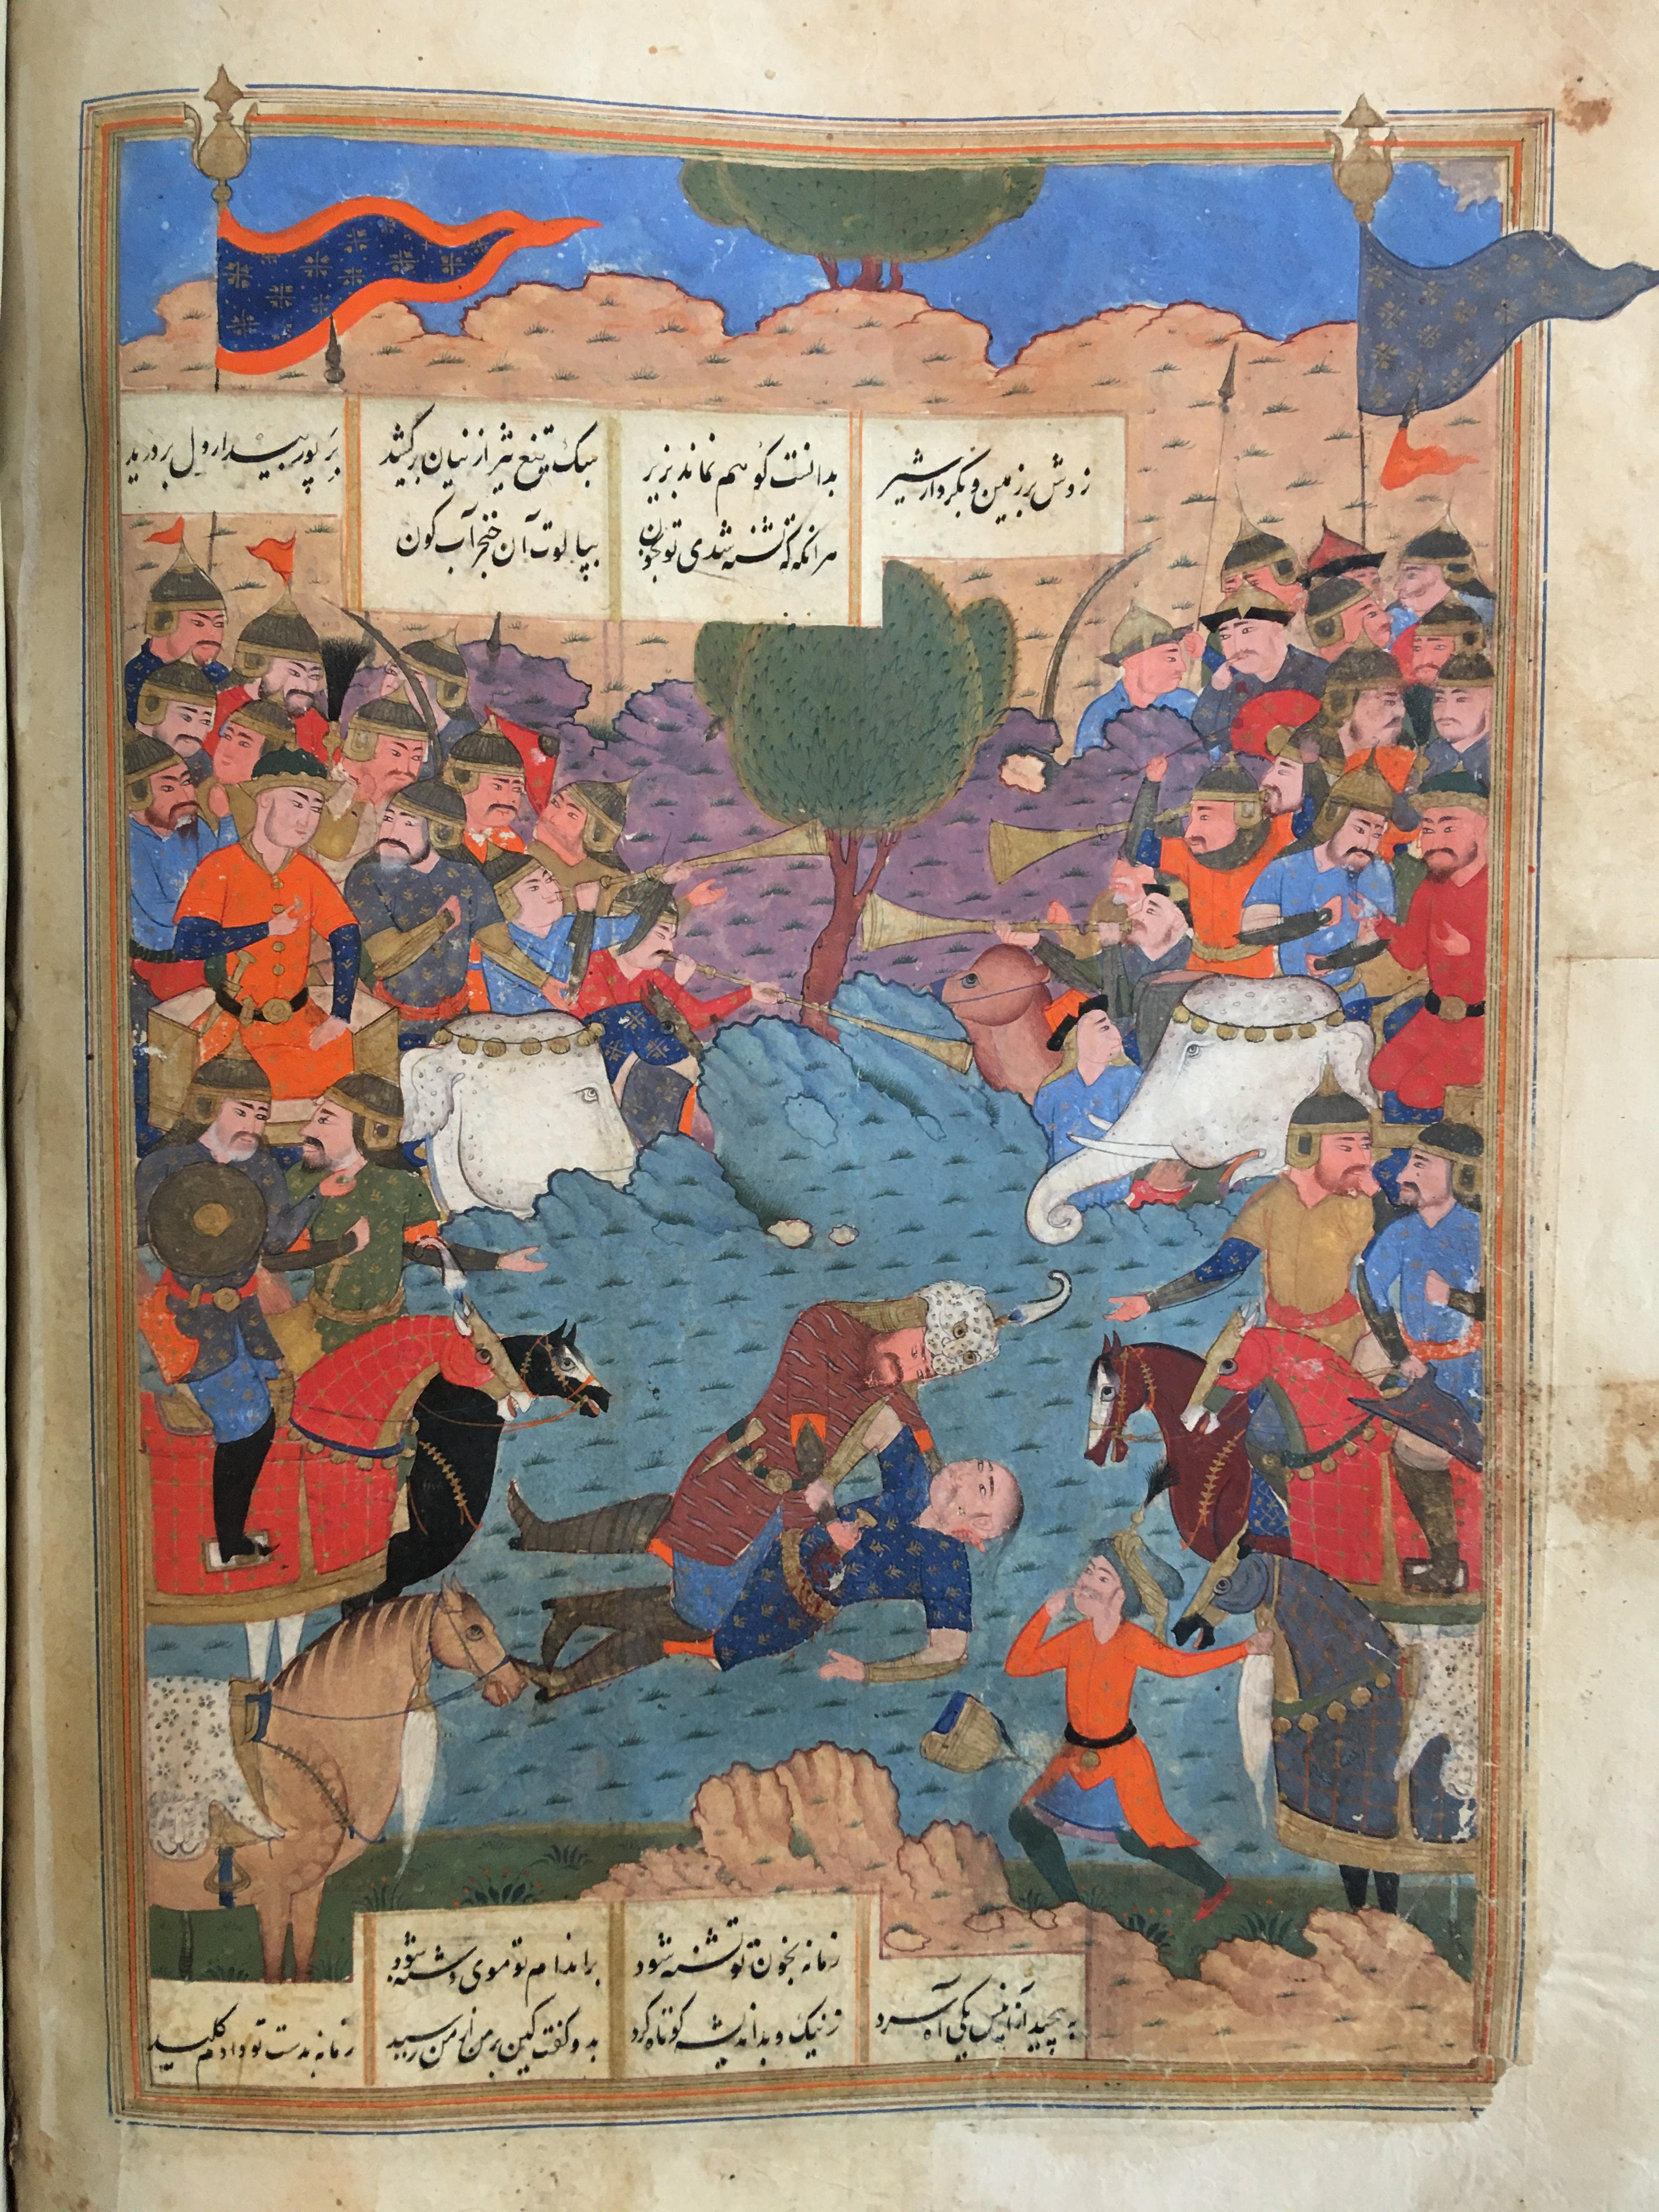 زدش بر زمین و بکردار شیر بدانست کو هم نماند بزیر سبک تیغ تیز از نیان برکشید بر پور بیدار دل بردرید
هر آنگه که تشنه شدی تو بخون بیالوت آن خنجر آب کون
زمانه بخون تو تشنه شود بر اندام تو موی دشنه شود
به پیچید ازان پس یکی آه سرد ز نیک و بد اندیشه کوتاه کرد بدو کفت کین بر من از من رسید زمانه بدست تو دادم کلید